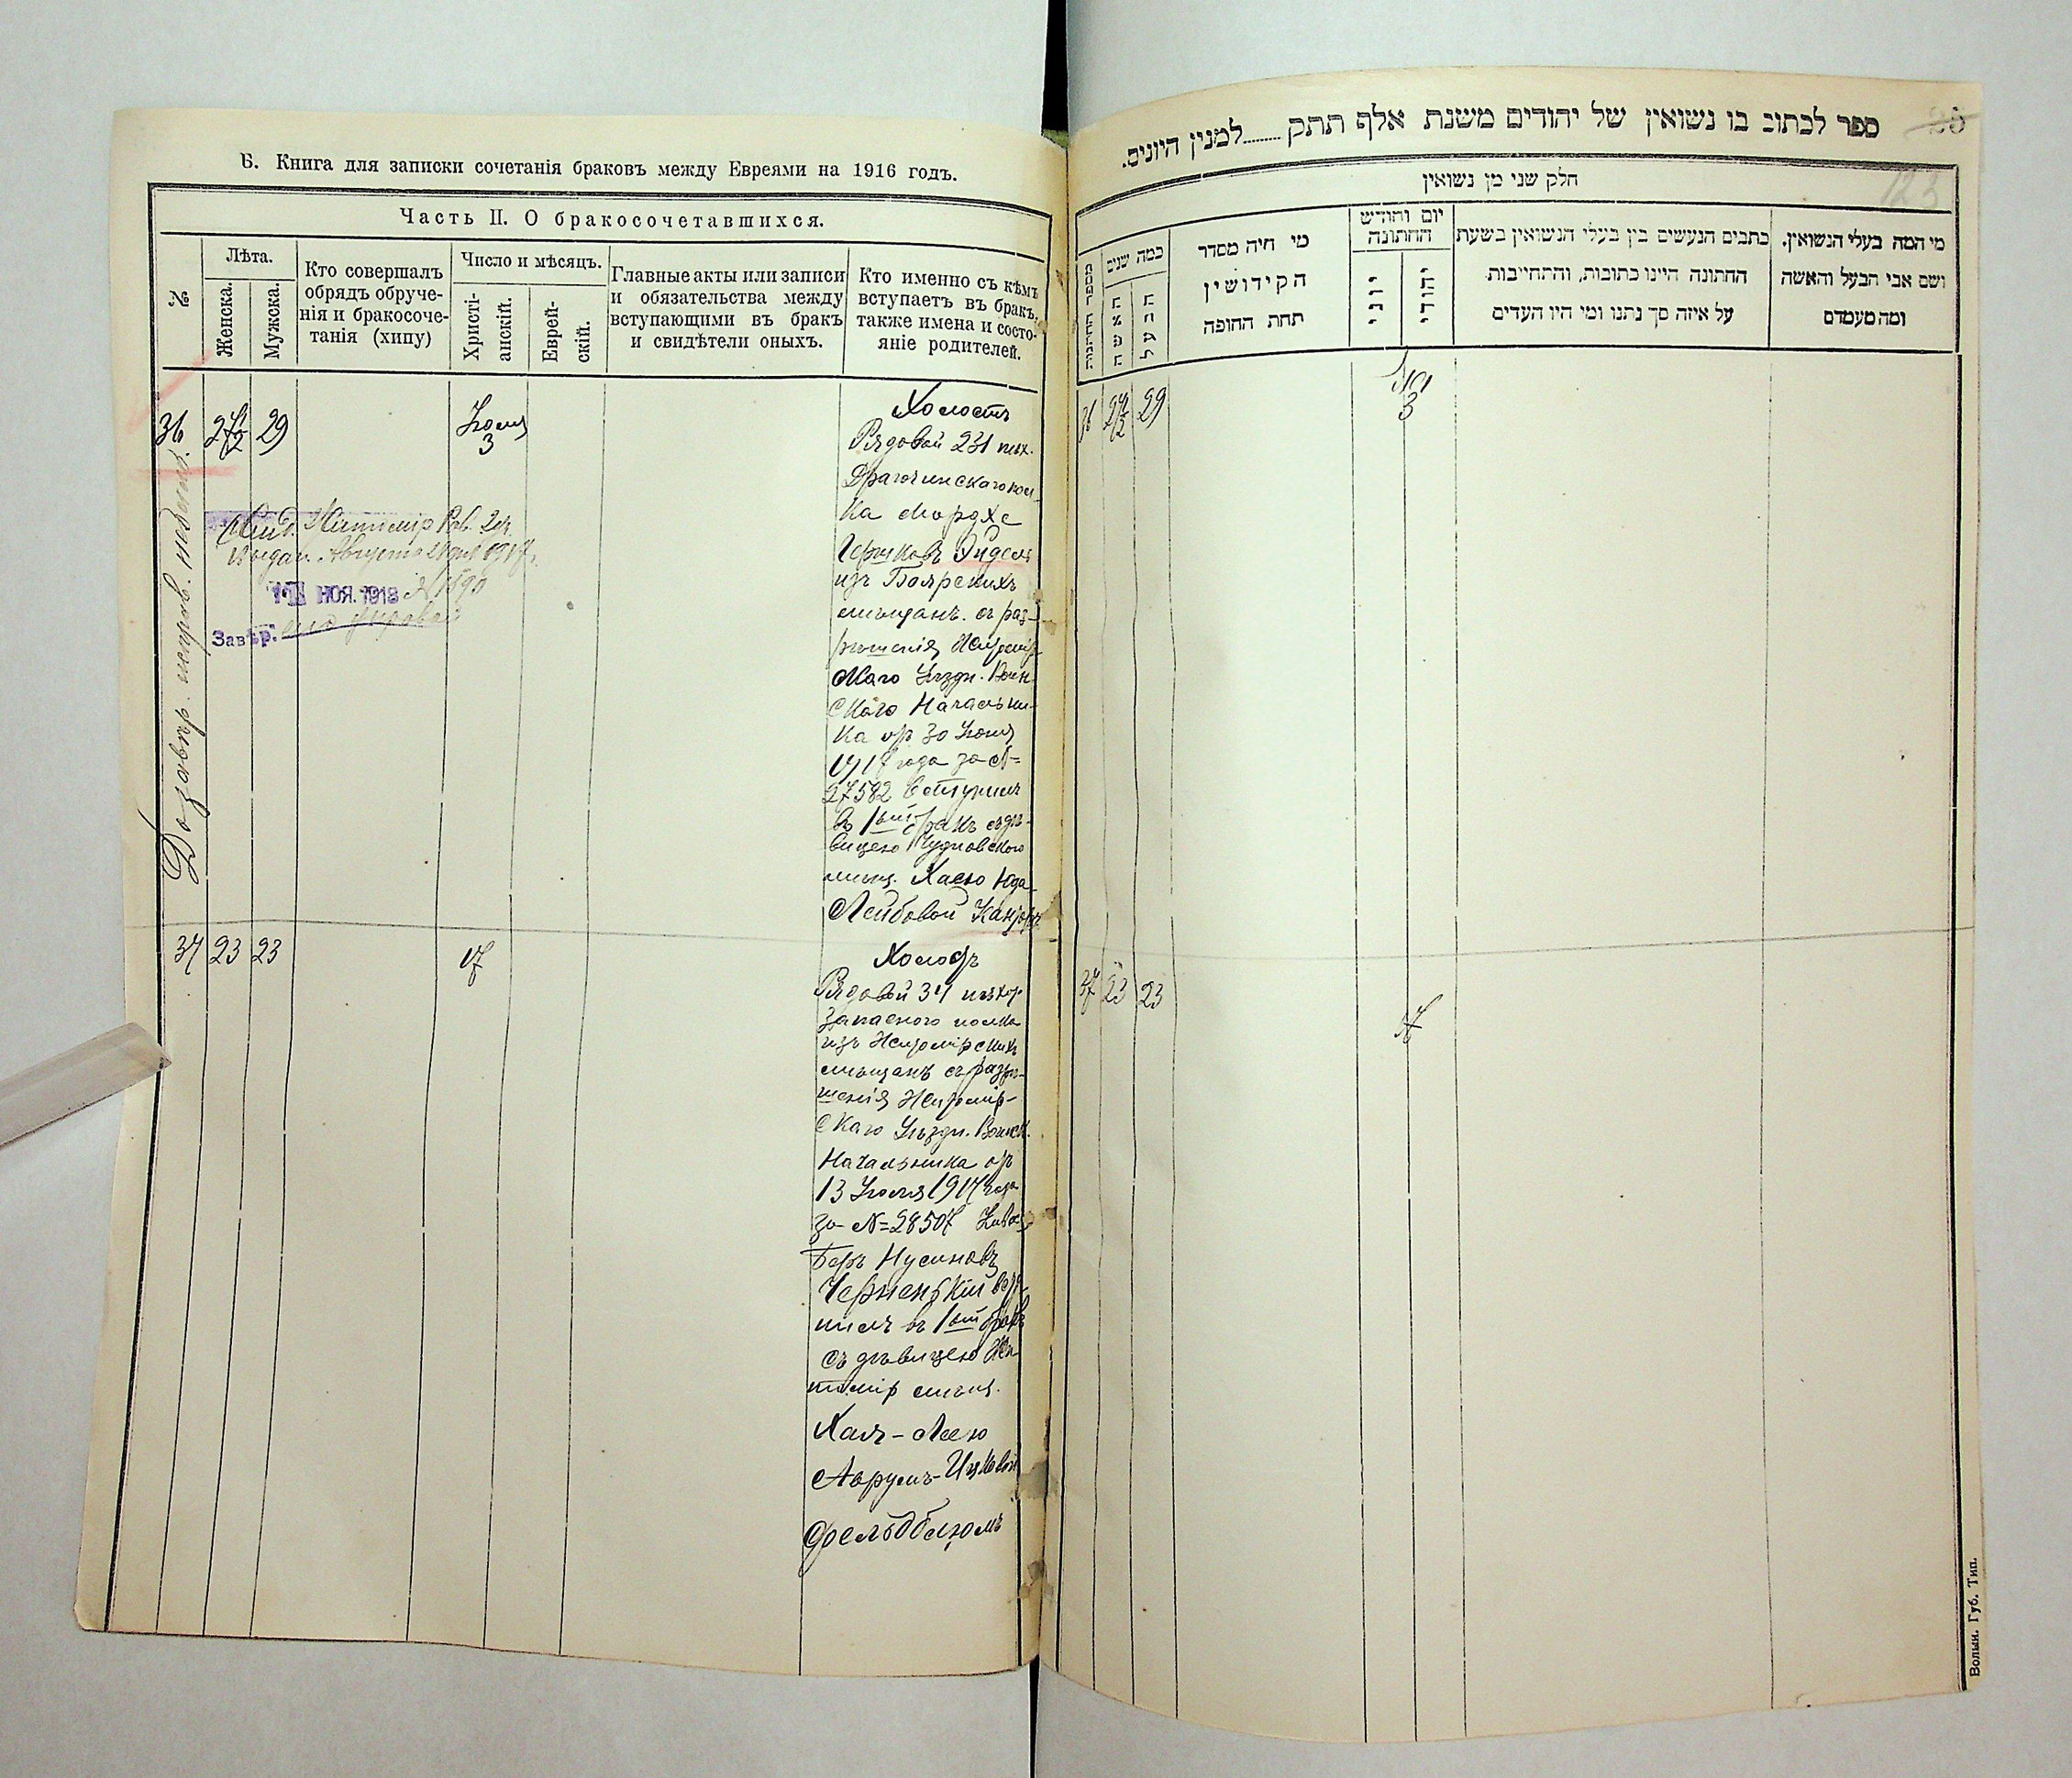 Б. Книга для записки сочетанія браковъ между Евреями на 1916 годъ.
Часть II. О бракосочетавшихся.
№
Лѣта.
Женска.
Мужска.
Кто совершалъ
обрядъ обруче-
нія и бракосоче-
танія (хипу)
Число и мѣсяцъ.
Христі-
анскій.
Еврей-
скій.
Главные акты или записи
и обязательства между
вступающими въ бракъ
и свидѣтели оныхъ.
Кто именно съ кѣмъ
вступаетъ въ бракъ,
также имена и состо-
яніе родителей.
36 27½ 29
Іюля
3
Холостъ
Рядовой 231 пѣх.
Драгочинскаго пол-
ка Мордхе
Гершковъ Эйдель
изъ Боярскихъ
мѣщанъ. съ раз-
рѣшенія Житомір
скаго Уѣздн. Воин-
скаго Начальни-
ка отъ 30 Іюня
1917 года за №
27582 вступилъ
въ 1ый бракъ съ дѣ-
вицею Чудновскою
мѣщ. Хаею Юда-
Лейбовой Кантор
Житомір Рав.
выдан. Августа 1917
№ 1590
НОЯ. 1918
Завѣр.
37 23 23
17
Холостъ
Рядовой 34 пѣхот
Запаснаго полка
изъ Житомірскихъ
мѣщанъ съ разрѣ-
шенія Житомір-
скаго Уѣздн. Воинск.
Начальника отъ
13 Іюля 1917 года
за № 28507
Беръ Нусиновъ
Черненькій всту-
пилъ въ 1ый бракъ
съ дѣвицею Жи
томір мѣщ.
Хая-Лею
Аврумъ-Ицковой
Фельдблюмъ
ספר לכתוב בו נשואין של יהודים משנת אלף תתק ........ למנין היונים.
123
חלק שני מן נשואין
מספר החתונות
כמה שנים
האשה
הבעל
מי היה מסדר
הקידושין
תחת החופה
יום וחודש
החתונה
יוני
יהודי
כתבים הנעשים בין בעלי הנשואין בשעת
החתונה היינו כתובות, והתחייבות
על איזה סך נתנו ומי היו העדים
מי המה בעלי הנשואין.
ושם אבי הבעל והאשה
ומה מעמדם
36 27½ 29
3
37 23 23
17
Волын. Губ. Тип.